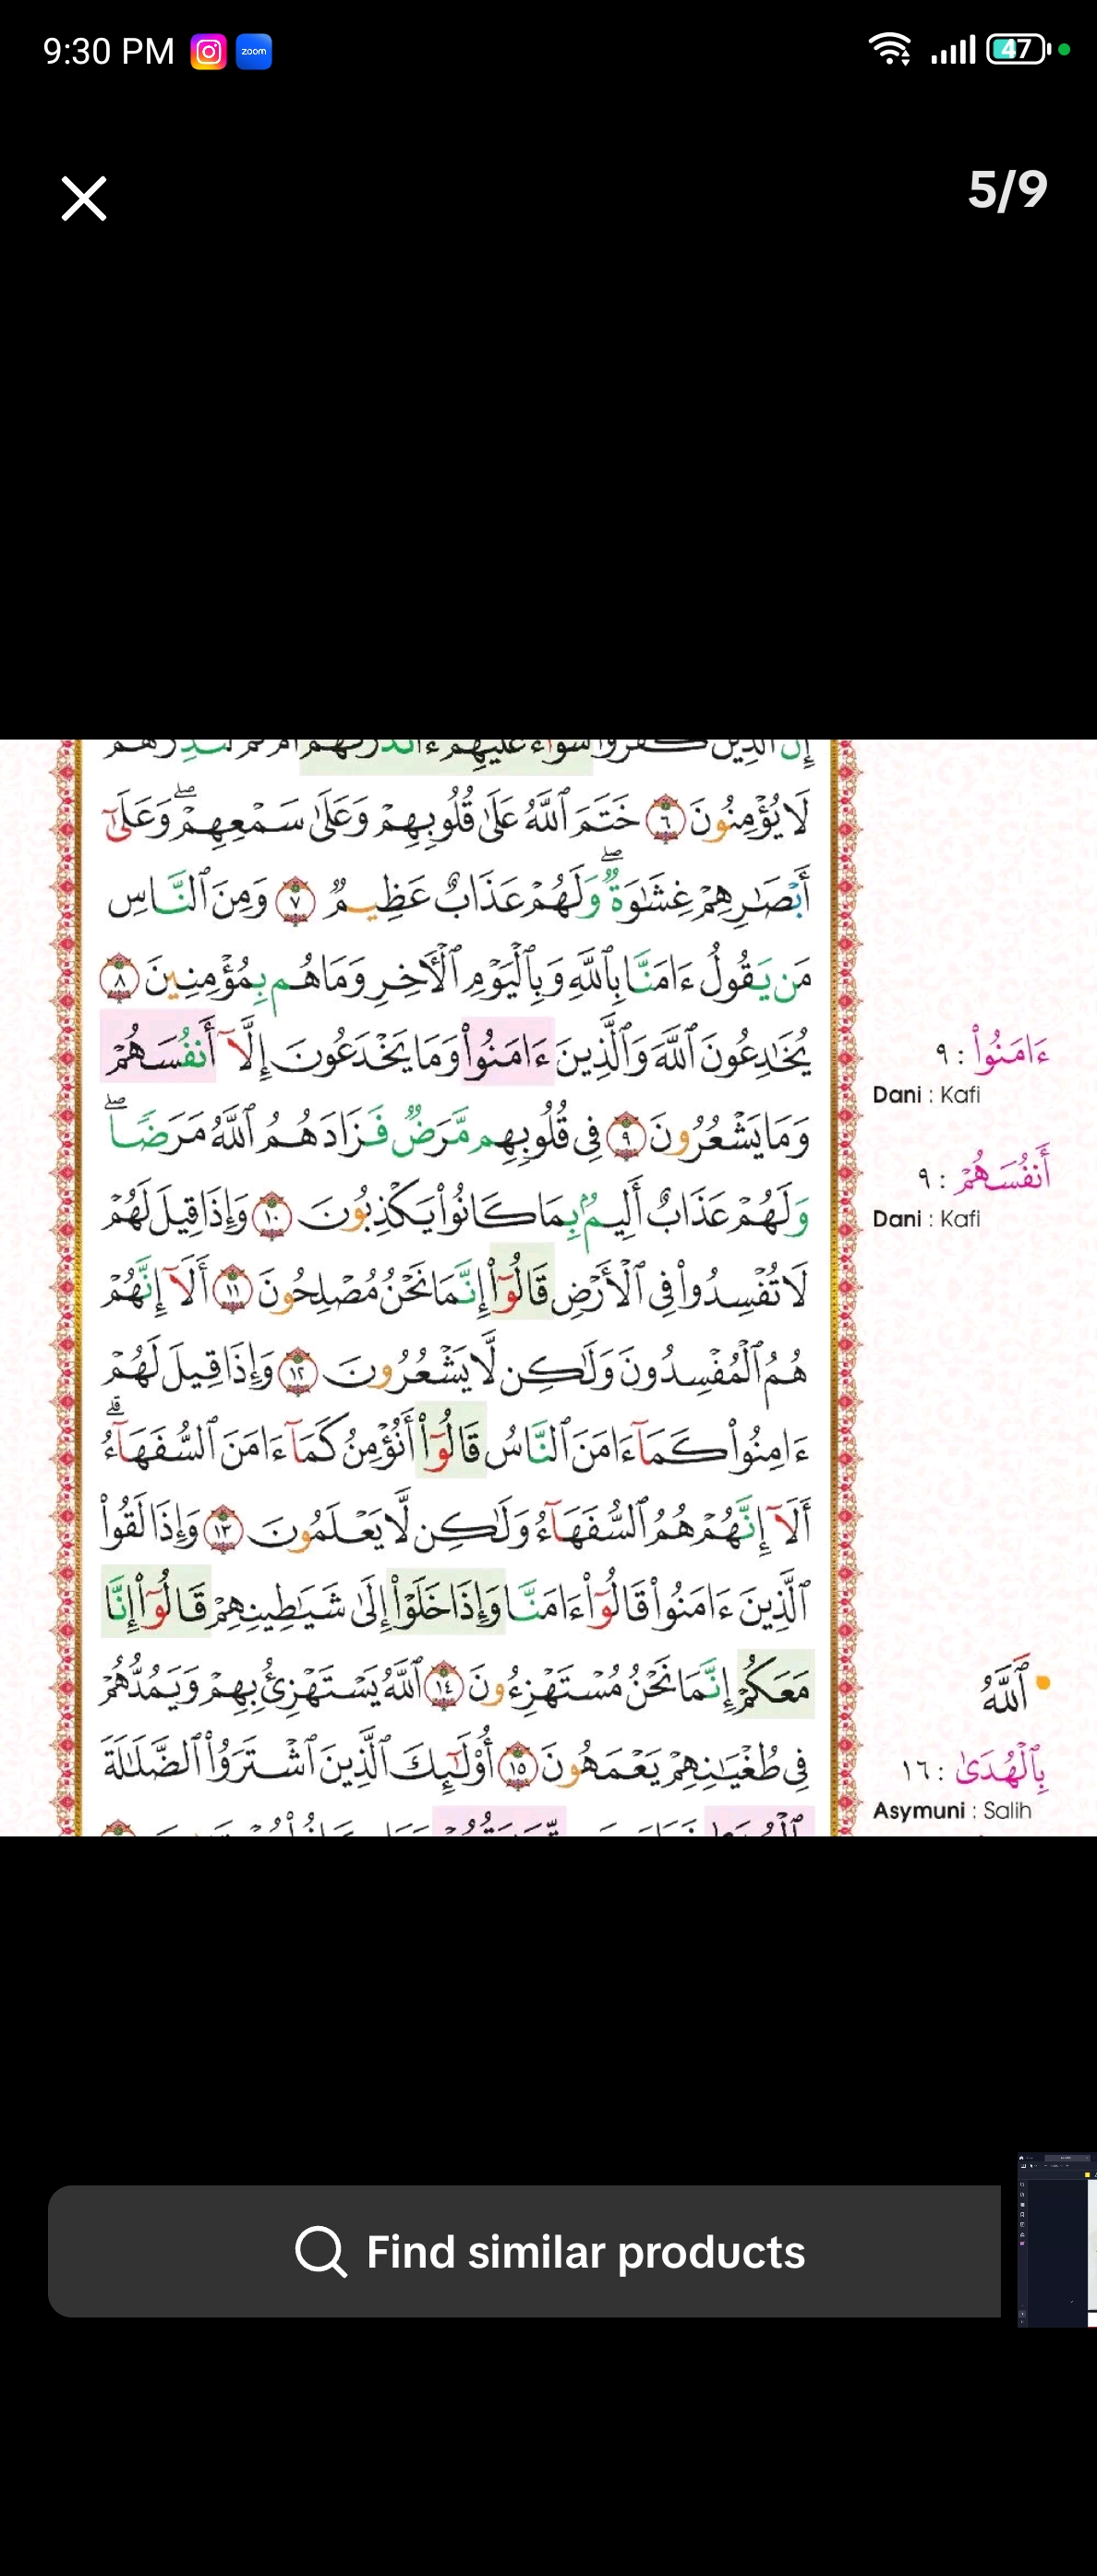 9:30 PM
zoom
47
5/9
إِنَّ ٱلَّذِينَ كَفَرُوا۟ سَوَآءٌ عَلَيْهِمْ ءَأَنذَرْتَهُمْ أَمْ لَمْ تُنذِرْهُمْ
لَا يُؤْمِنُونَ ٦ خَتَمَ ٱللَّهُ عَلَىٰ قُلُوبِهِمْ وَعَلَىٰ سَمْعِهِمْ ۖ وَعَلَىٰٓ
أَبْصَـٰرِهِمْ غِشَـٰوَةٌ ۖ وَلَهُمْ عَذَابٌ عَظِيمٌ ٧ وَمِنَ ٱلنَّاسِ
مَن يَقُولُ ءَامَنَّا بِٱللَّهِ وَبِٱلْيَوْمِ ٱلْـَٔاخِرِ وَمَا هُم بِمُؤْمِنِينَ ٨
يُخَـٰدِعُونَ ٱللَّهَ وَٱلَّذِينَ ءَامَنُوا۟ وَمَا يَخْدَعُونَ إِلَّآ أَنفُسَهُمْ
وَمَا يَشْعُرُونَ ٩ فِى قُلُوبِهِم مَّرَضٌ فَزَادَهُمُ ٱللَّهُ مَرَضًا ۖ
وَلَهُمْ عَذَابٌ أَلِيمٌۢ بِمَا كَانُوا۟ يَكْذِبُونَ ١٠ وَإِذَا قِيلَ لَهُمْ
لَا تُفْسِدُوا۟ فِى ٱلْأَرْضِ قَالُوٓا۟ إِنَّمَا نَحْنُ مُصْلِحُونَ ١١ أَلَآ إِنَّهُمْ
هُمُ ٱلْمُفْسِدُونَ وَلَـٰكِن لَّا يَشْعُرُونَ ١٢ وَإِذَا قِيلَ لَهُمْ
ءَامِنُوا۟ كَمَآ ءَامَنَ ٱلنَّاسُ قَالُوٓا۟ أَنُؤْمِنُ كَمَآ ءَامَنَ ٱلسُّفَهَآءُ ۗ
أَلَآ إِنَّهُمْ هُمُ ٱلسُّفَهَآءُ وَلَـٰكِن لَّا يَعْلَمُونَ ١٣ وَإِذَا لَقُوا۟
ٱلَّذِينَ ءَامَنُوا۟ قَالُوٓا۟ ءَامَنَّا وَإِذَا خَلَوْا۟ إِلَىٰ شَيَـٰطِينِهِمْ قَالُوٓا۟ إِنَّا
مَعَكُمْ إِنَّمَا نَحْنُ مُسْتَهْزِءُونَ ١٤ ٱللَّهُ يَسْتَهْزِئُ بِهِمْ وَيَمُدُّهُمْ
فِى طُغْيَـٰنِهِمْ يَعْمَهُونَ ١٥ أُو۟لَـٰٓئِكَ ٱلَّذِينَ ٱشْتَرَوُا۟ ٱلضَّلَـٰلَةَ
ءَامَنُوا۟ : ٩
Dani : Kafi
أَنفُسَهُمْ : ٩
Dani : Kafi
ٱللَّهُ
بِٱلْهُدَىٰ : ١٦
Asymuni : Salih
Find similar products